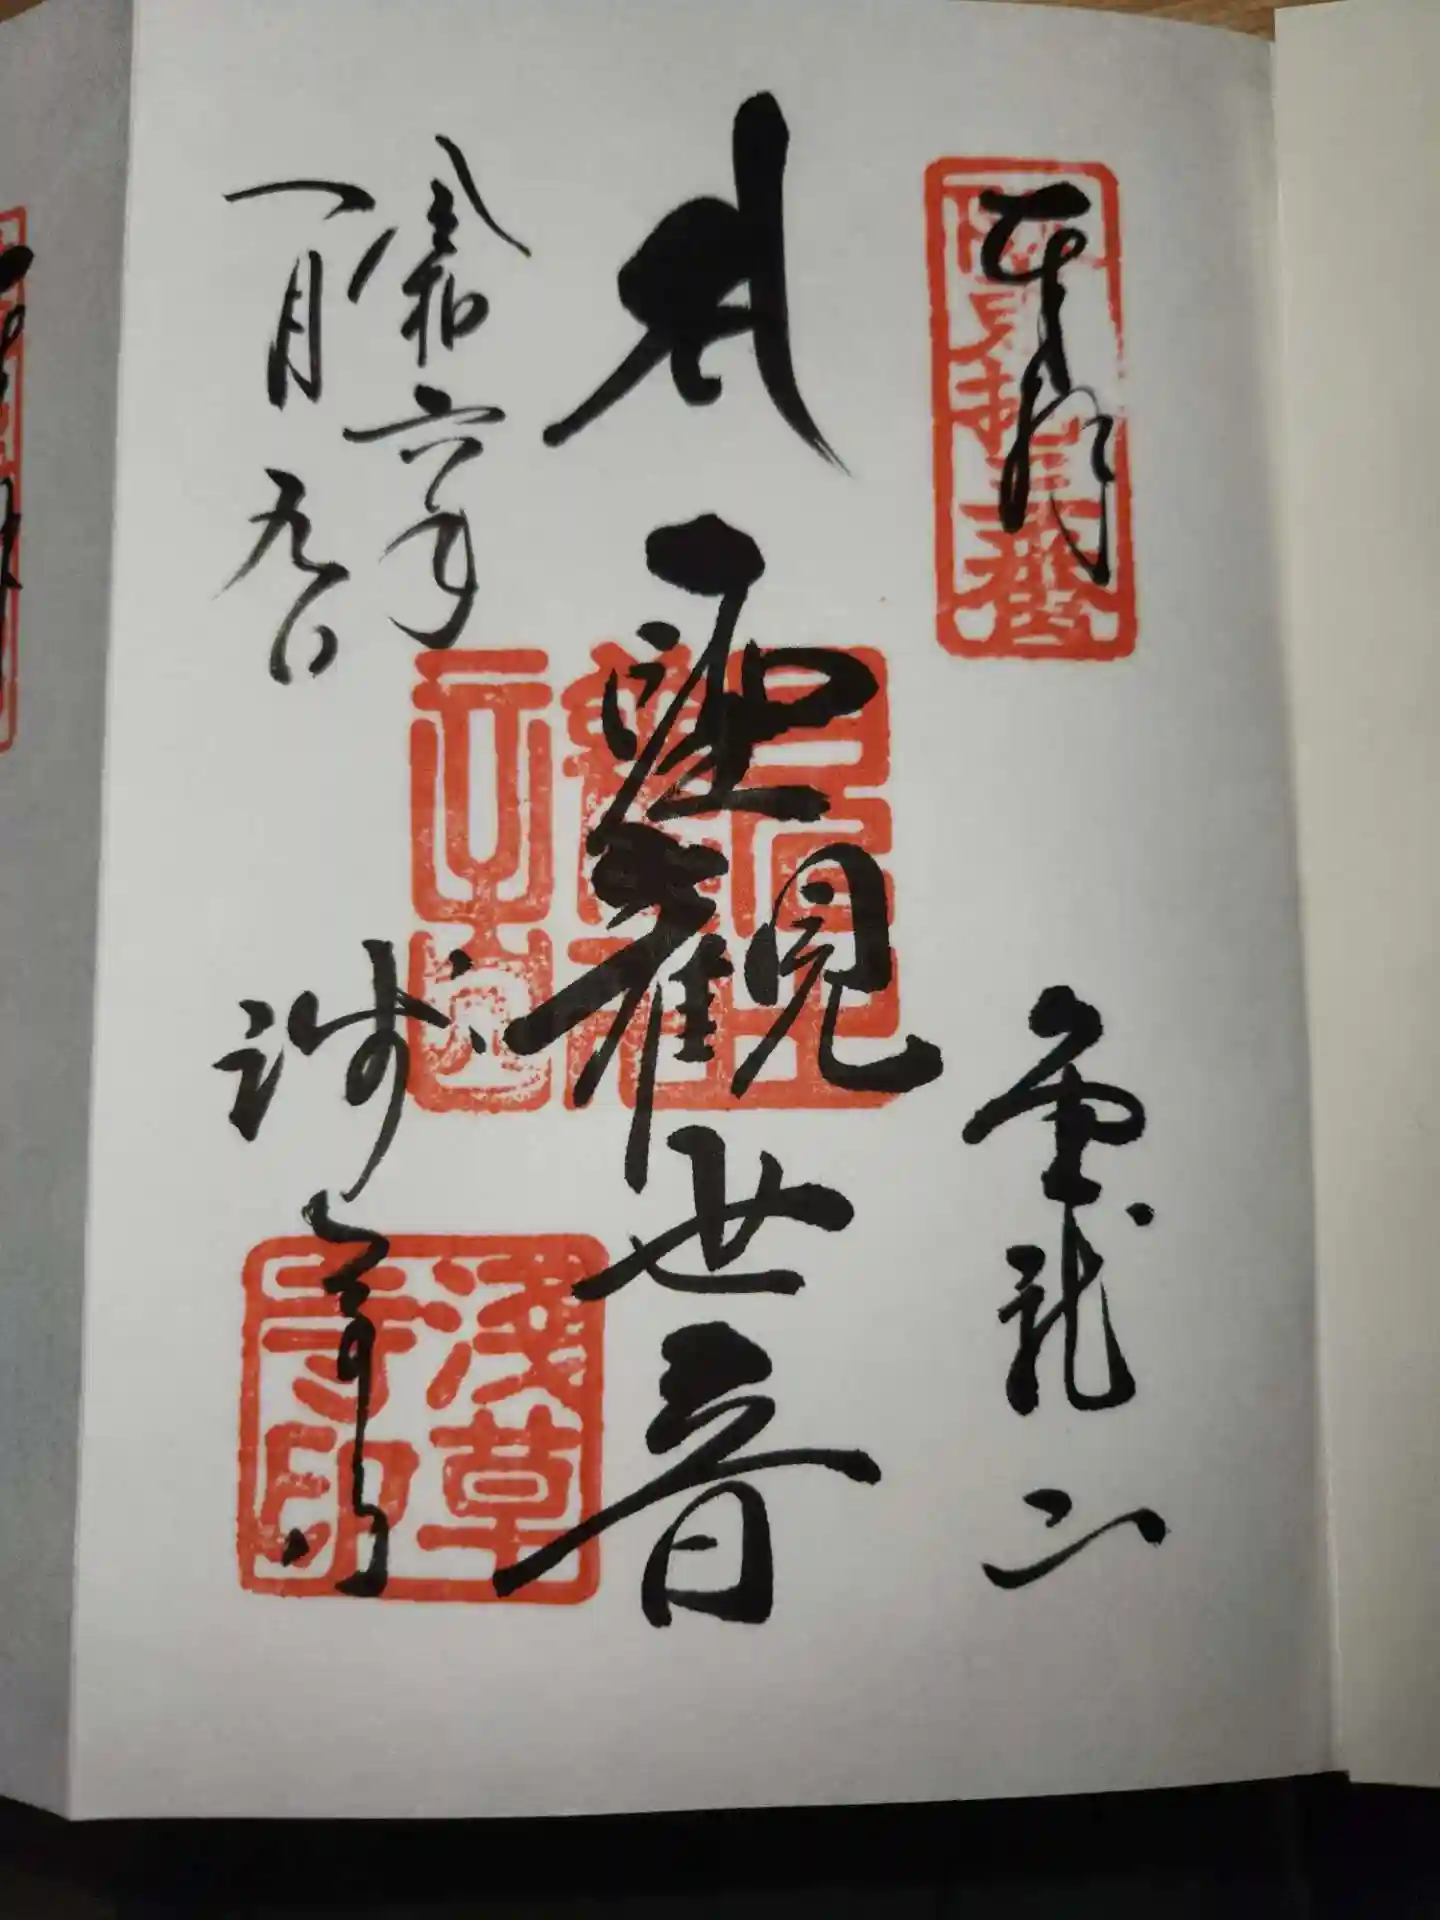 奉拝
坂東拾三番
金龍山
聖観世音
令和六年
一月九日
浅草寺
淺草
寺印